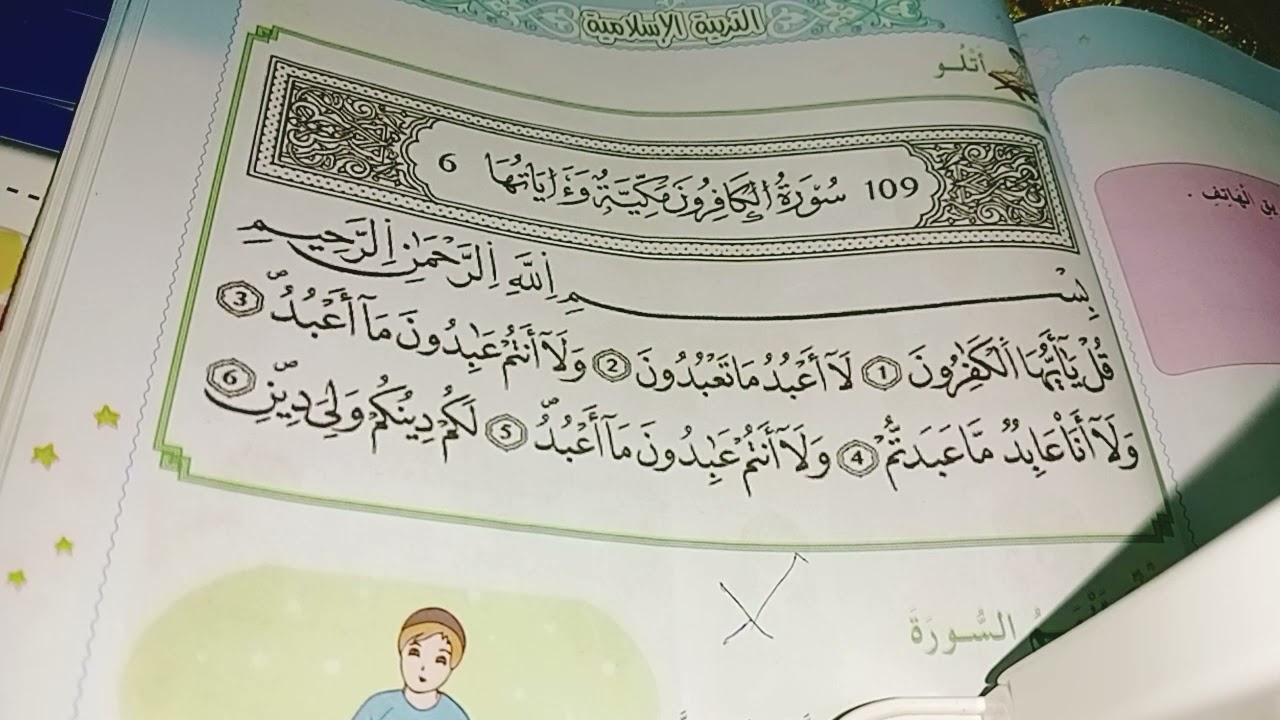 التربية الإسلامية
أَتْلُو
109 سُورَةُ الْكَافِرُونَ مَكِّيَّةٌ وَءَايَاتُهَا 6
بِسْمِ اِللَّهِ اِلرَّحْمَٰنِ اِلرَّحِيمِ
قُلْ يَٰٓأَيُّهَا اَلْكَٰفِرُونَ 1 لَآ أَعْبُدُ مَا تَعْبُدُونَ 2 وَلَآ أَنتُمْ عَٰبِدُونَ مَآ أَعْبُدُ 3
وَلَآ أَنَا عَابِدٌ مَّا عَبَدتُّمْ 4 وَلَآ أَنتُمْ عَٰبِدُونَ مَآ أَعْبُدُ 5 لَكُمْ دِينُكُمْ وَلِيَ دِينِ 6
السُّورَةَ
الْهَاتِفِ .